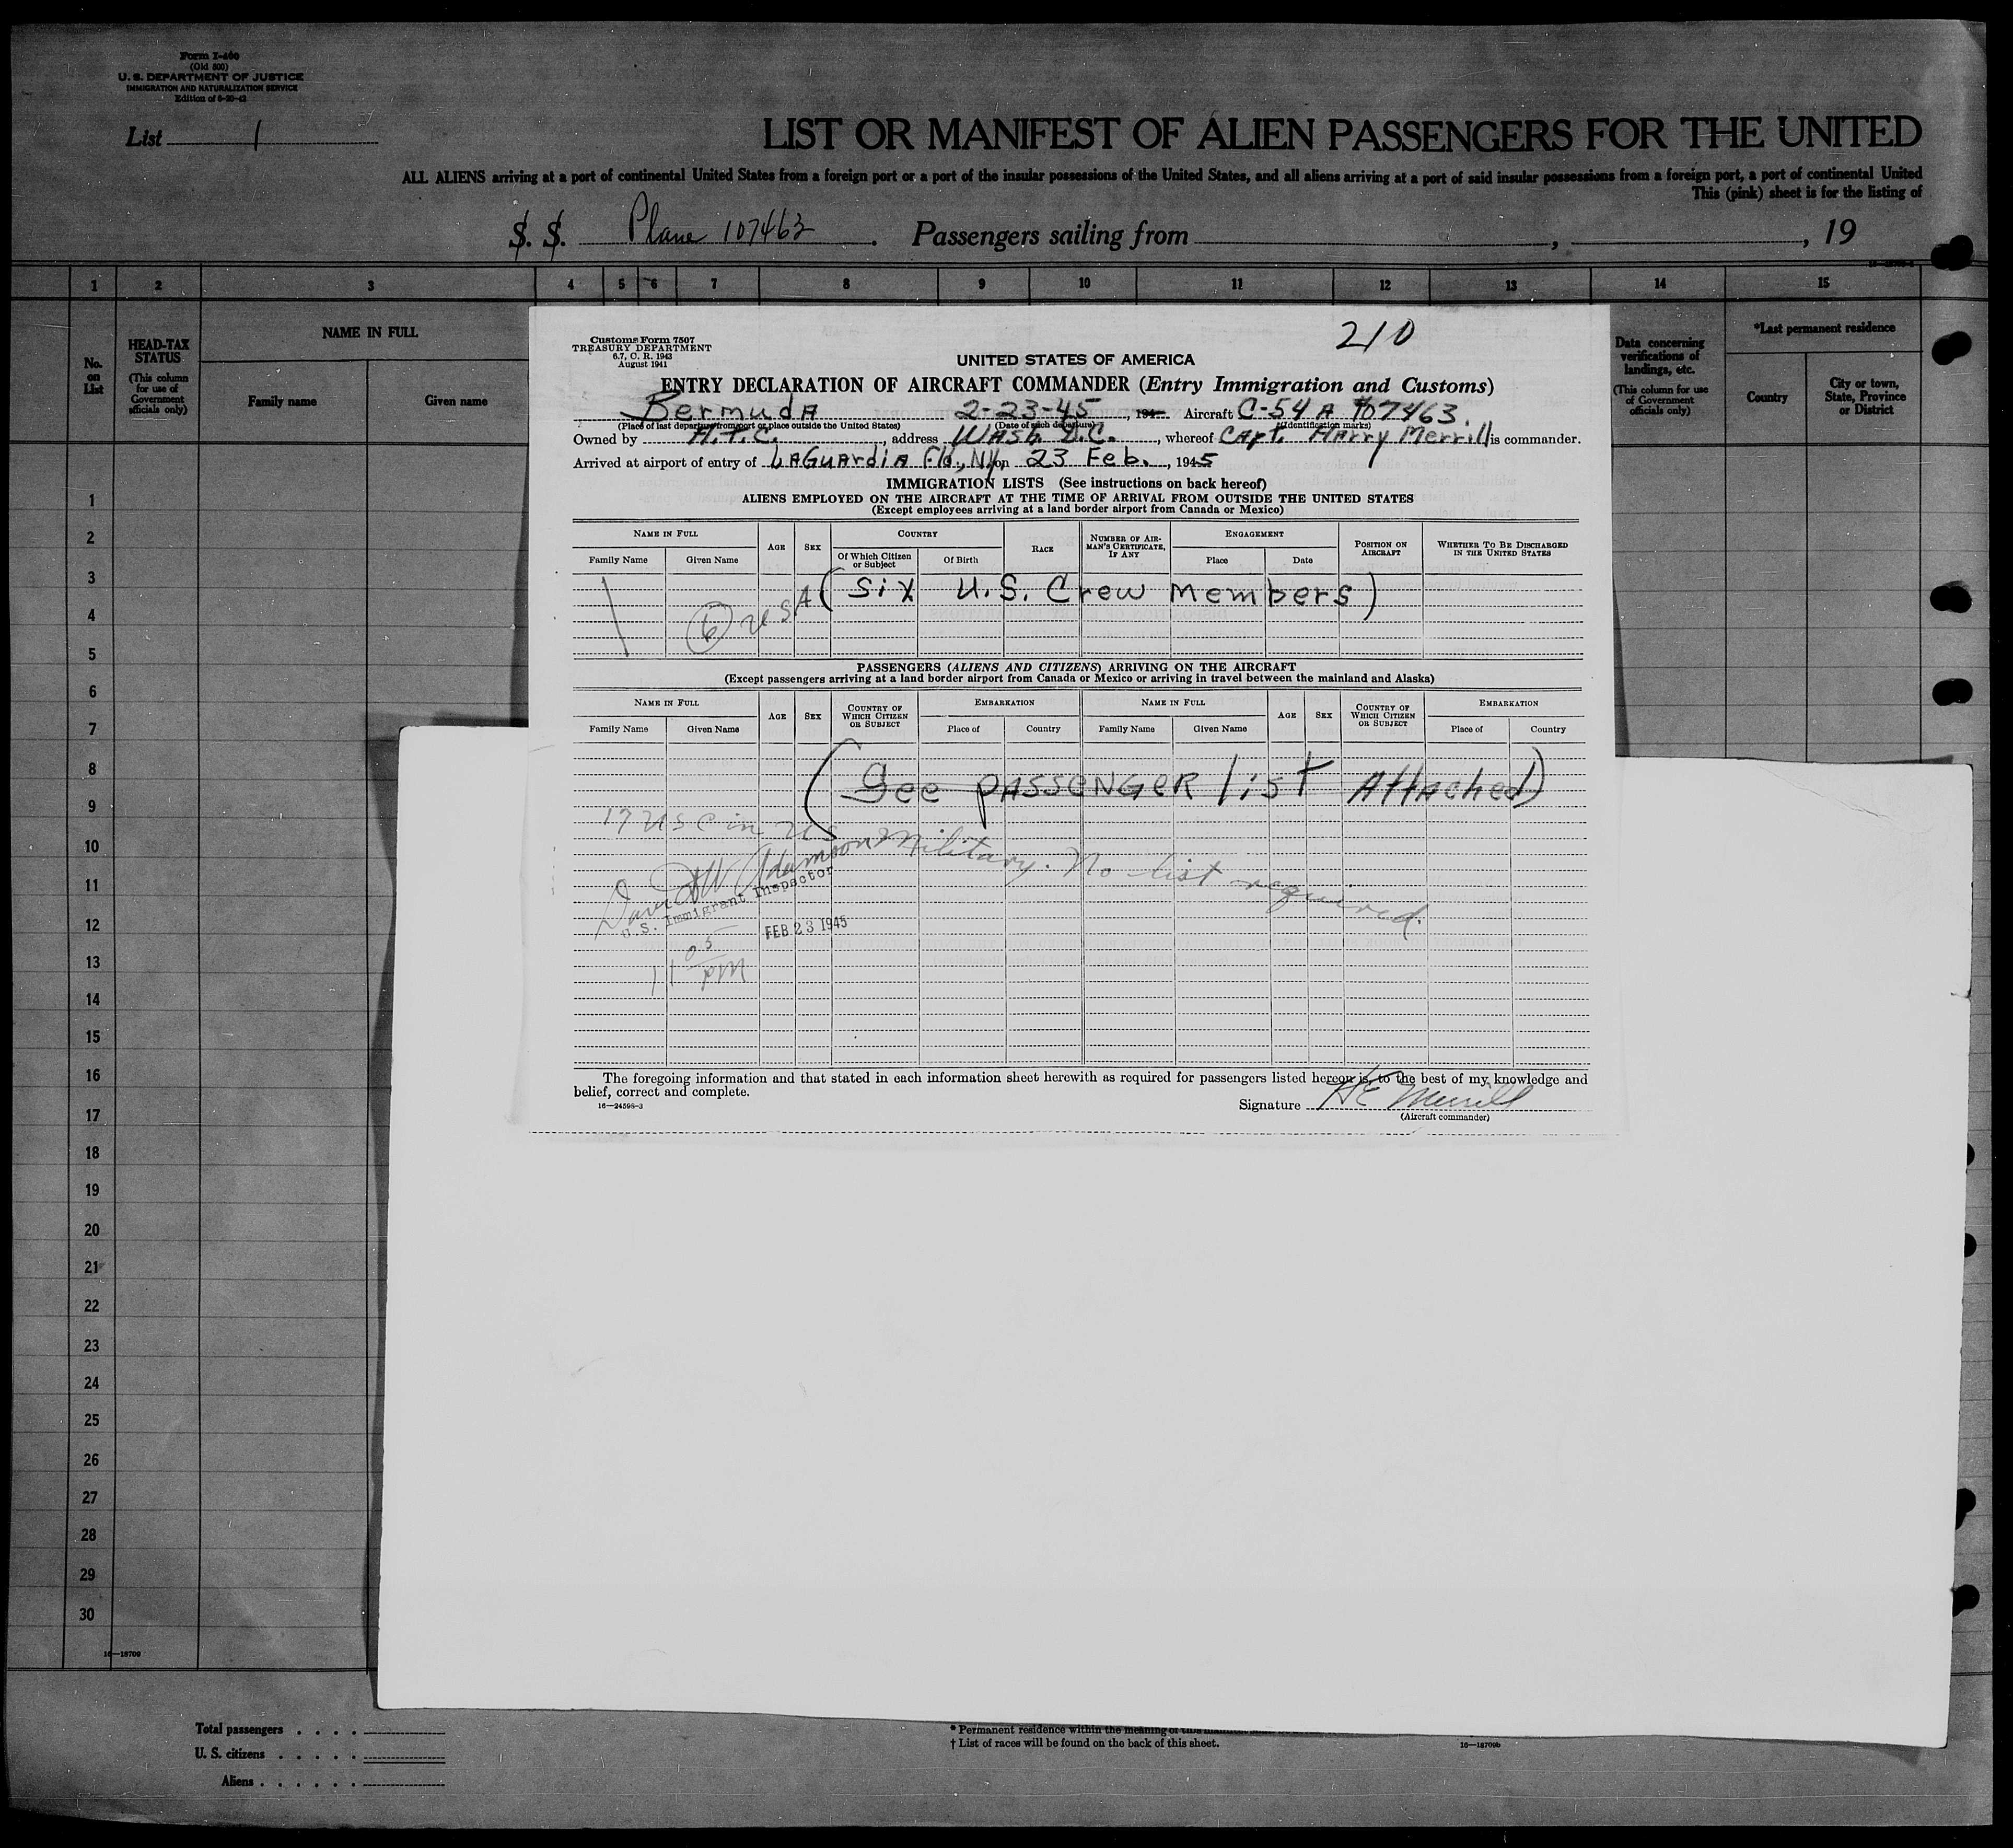 Form I-466
(Old 500)
U. S. DEPARTMENT OF JUSTICE
IMMIGRATION AND NATURALIZATION SERVICE
List 1
LIST OR MANIFEST OF ALIEN PASSENGERS FOR THE UNITED
ALL ALIENS arriving at a port of continental United States from a foreign port or a port of the insular possessions of the United States, and all aliens arriving at a port of said insular possessions from a foreign port, a port of continental United
This (pink) sheet is for the listing of
S. S. Plane 107463. Passengers sailing from , , 19
1 2 3 4 5 6 7 8 9 10 11 12 13 14 15
No. on List
HEAD-TAX STATUS
(This column for use of Government officials only)
NAME IN FULL
Family name Given name
Data concerning verifications of landings, etc.
(This column for use of Government officials only)
*Last permanent residence
Country
City or town, State, Province or District
210
Customs Form 7507
TREASURY DEPARTMENT
6.7, C. R. 1943
August 1941
UNITED STATES OF AMERICA
ENTRY DECLARATION OF AIRCRAFT COMMANDER (Entry Immigration and Customs)
Bermuda 2-23-45, 194 Aircraft C-54 A 107463.
(Place of last departure from port or place outside the United States) (Date of such departure) (Identification marks)
Owned by A.T.C., address Wash. D.C., whereof Capt. Harry Merrill is commander.
Arrived at airport of entry of LaGuardia Fld., N.Y. on 23 Feb., 1945
IMMIGRATION LISTS (See instructions on back hereof)
ALIENS EMPLOYED ON THE AIRCRAFT AT THE TIME OF ARRIVAL FROM OUTSIDE THE UNITED STATES
(Except employees arriving at a land border airport from Canada or Mexico)
NAME IN FULL
Family Name Given Name
AGE
SEX
COUNTRY
Of Which Citizen or Subject
Of Birth
RACE
NUMBER OF AIRMAN'S CERTIFICATE, IF ANY
ENGAGEMENT
Place Date
POSITION ON AIRCRAFT
WHETHER TO BE DISCHARGED IN THE UNITED STATES
(Six U.S. Crew members)
6 USA
PASSENGERS (ALIENS AND CITIZENS) ARRIVING ON THE AIRCRAFT
(Except passengers arriving at a land border airport from Canada or Mexico or arriving in travel between the mainland and Alaska)
NAME IN FULL
Family Name Given Name
AGE
SEX
COUNTRY OF WHICH CITIZEN OR SUBJECT
EMBARKATION
Place of Country
NAME IN FULL
Family Name Given Name
AGE
SEX
COUNTRY OF WHICH CITIZEN OR SUBJECT
EMBARKATION
Place of Country
(See passenger list Attached)
17 USC in US Military. No list required.
David W Adamson
U.S. Immigrant Inspector
FEB 23 1945
11 05 PM
The foregoing information and that stated in each information sheet herewith as required for passengers listed hereon is, to the best of my knowledge and
belief, correct and complete.
16—24598-3
Signature HE Merrill
(Aircraft commander)
1
2
3
4
5
6
7
8
9
10
11
12
13
14
15
16
17
18
19
20
21
22
23
24
25
26
27
28
29
30
16—18709
Total passengers . . . .
U. S. citizens . . . . .
Aliens . . . . . .
* Permanent residence within the meaning of this
† List of races will be found on the back of this sheet.
16—18709b